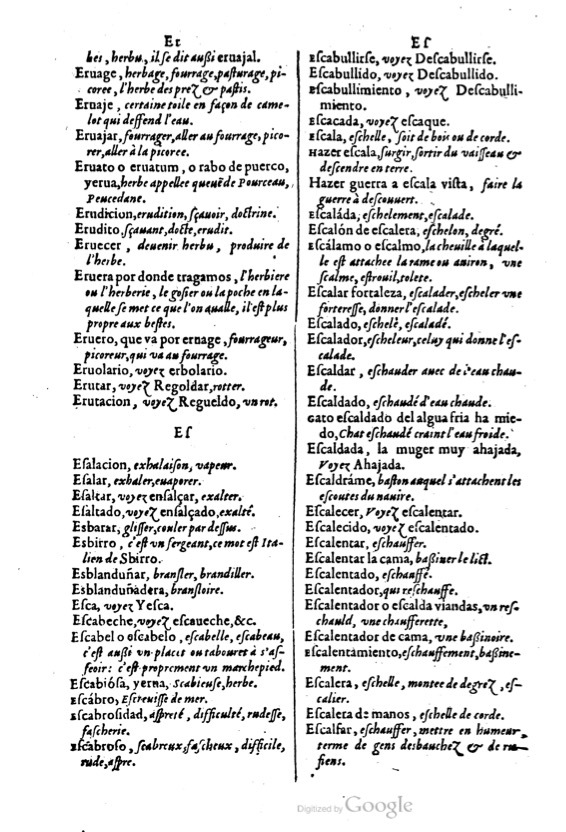 Er
bes, herbu, il se dit außi eruajal.
Eruage, herbage, fourrage, pasturage, pi-
coree, l'herbe des prez & pastis.
Eruaje, certaine toile en façon de came-
lot qui deffend l'eau.
Eruajar, fourrager, aller au fourrage, pico-
rer, aller à la picoree.
Eruato o eruatum, o rabo de puerco,
yerua, herbe appellee queuë de Pourceau,
Peucedane.
Erudicion, erudition, sçauoir, doctrine.
Erudito, sçauant, docte, erudit.
Eruecer, deuenir herbu, produire de
l'herbe.
Eruera por donde tragamos, l'herbiere
ou l'herberie, le gosier ou la poche en la-
quelle se met ce que l'on aualle, il est plus
propre aux bestes.
Eruero, que va por eruage, fourrageur,
picoreur, qui va au fourrage.
Eruolario, voyez erbolario.
Erutar, voyez Regoldar, rotter.
Erutacion, voyez Regueldo, vn rot.
Eſ
Eſalacion, exhalaison, vapeur.
Eſalar, exhaler, euaporer.
Eſaltar, voyez enſalçar, exalter.
Eſaltado, voyez enſalçado, exalté.
Esbarar, glisser, couler par dessus.
Esbirro, c'est vn sergeant, ce mot est Ita-
lien de Sbirro.
Esblanduñar, bransler, brandiller.
Esblanduñadera, bransloire.
Eſca, voyez Yeſca.
Eſcabeche, voyez eſcaueche, &c.
Eſcabel o eſcabelo, escabelle, escabeau,
c'est außi vn placet ou tabouret à s'as-
seoir: c'est proprement vn marchepied.
Eſcabióſa, yerua, Scabieuse, herbe.
Eſcábro, Escreuisse de mer.
Eſcabroſidad, aspreté, difficulté, rudesse,
fascherie.
Eſcabroſo, scabreux, fascheux, difficile,
rude, aspre.
Eſ
Eſcabullirſe, voyez Deſcabullirſe.
Eſcabullido, voyez Deſcabullido.
Eſcabullimiento, voyez Deſcabulli-
miento.
Eſcacada, voyez eſcaque.
Eſcala, eschelle, soit de bois ou de corde.
Hazer eſcala, surgir, sortir du vaisseau &
descendre en terre.
Hazer guerra a eſcala viſta, faire la
guerre à descouuert.
Eſcaláda, eschelement, escalade.
Eſcalón de eſcalera, eschelon, degré.
Eſcálamo o eſcalmo, la cheuille à laquel-
le est attachee la rame ou auiron, vne
scalme, estrouil, tolete.
Eſcalar fortaleza, escalader, escheler vne
forteresse, donner l'escalade.
Eſcalado, eschelé, escaladé.
Eſcalador, escheleur, celuy qui donne l'es-
calade.
Eſcaldar, eschauder auec de l'eau chau-
de.
Eſcaldado, eschaudé d'eau chaude.
Gato eſcaldado del agua fria ha mie-
do, Chat eschaudé craint l'eau froide.
Eſcaldada, la muger muy ahajada,
Voyez Ahajada.
Eſcaldráme, baston auquel s'attachent les
escoutes du nauire.
Eſcalecer, Voyez eſcalentar.
Eſcalecido, voyez eſcalentado.
Eſcalentar, eschauffer.
Eſcalentar la cama, baßiner le lict.
Eſcalentado, eschauffé.
Eſcalentador, qui reschauffe.
Eſcalentador o eſcalda viandas, vn res-
chauld, vne chaufferette,
Eſcalentador de cama, vne baßinoire.
Eſcalentamiento, eschauffement, baßine-
ment.
Eſcalera, eschelle, montee de degrez, es-
calier.
Eſcalera de manos, eschelle de corde.
Eſcalfar, eschauffer, mettre en humeur,
terme de gens desbauchez & de ru-
fiens.
Digitized by Google